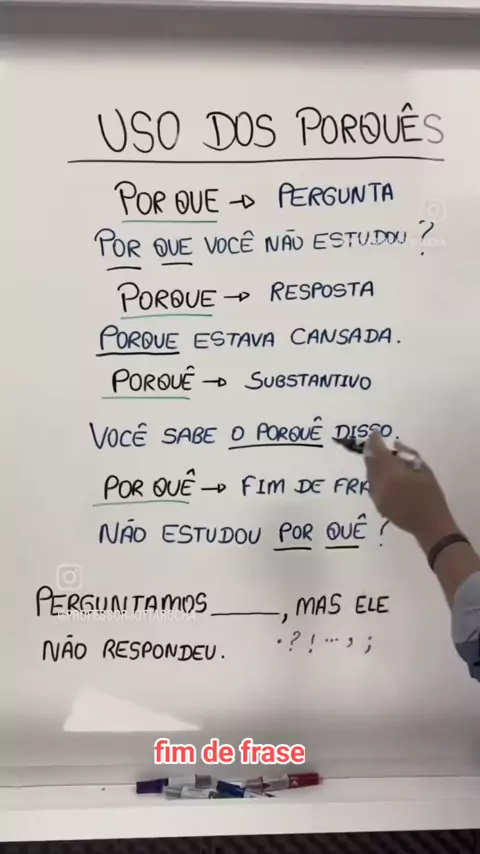 USO DOS PORQUÊS
POR QUE → PERGUNTA
POR QUE VOCÊ NÃO ESTUDOU?
PORQUE → RESPOSTA
PORQUE ESTAVA CANSADA.
PORQUÊ → SUBSTANTIVO
VOCÊ SABE O PORQUÊ DISSO.
POR QUÊ → FIM DE FRA
NÃO ESTUDOU POR QUÊ?
PERGUNTAMOS ______, MAS ELE
@PROFESSORJOTTAROCHA
NÃO RESPONDEU. . ? ! ... , ;
fim de frase